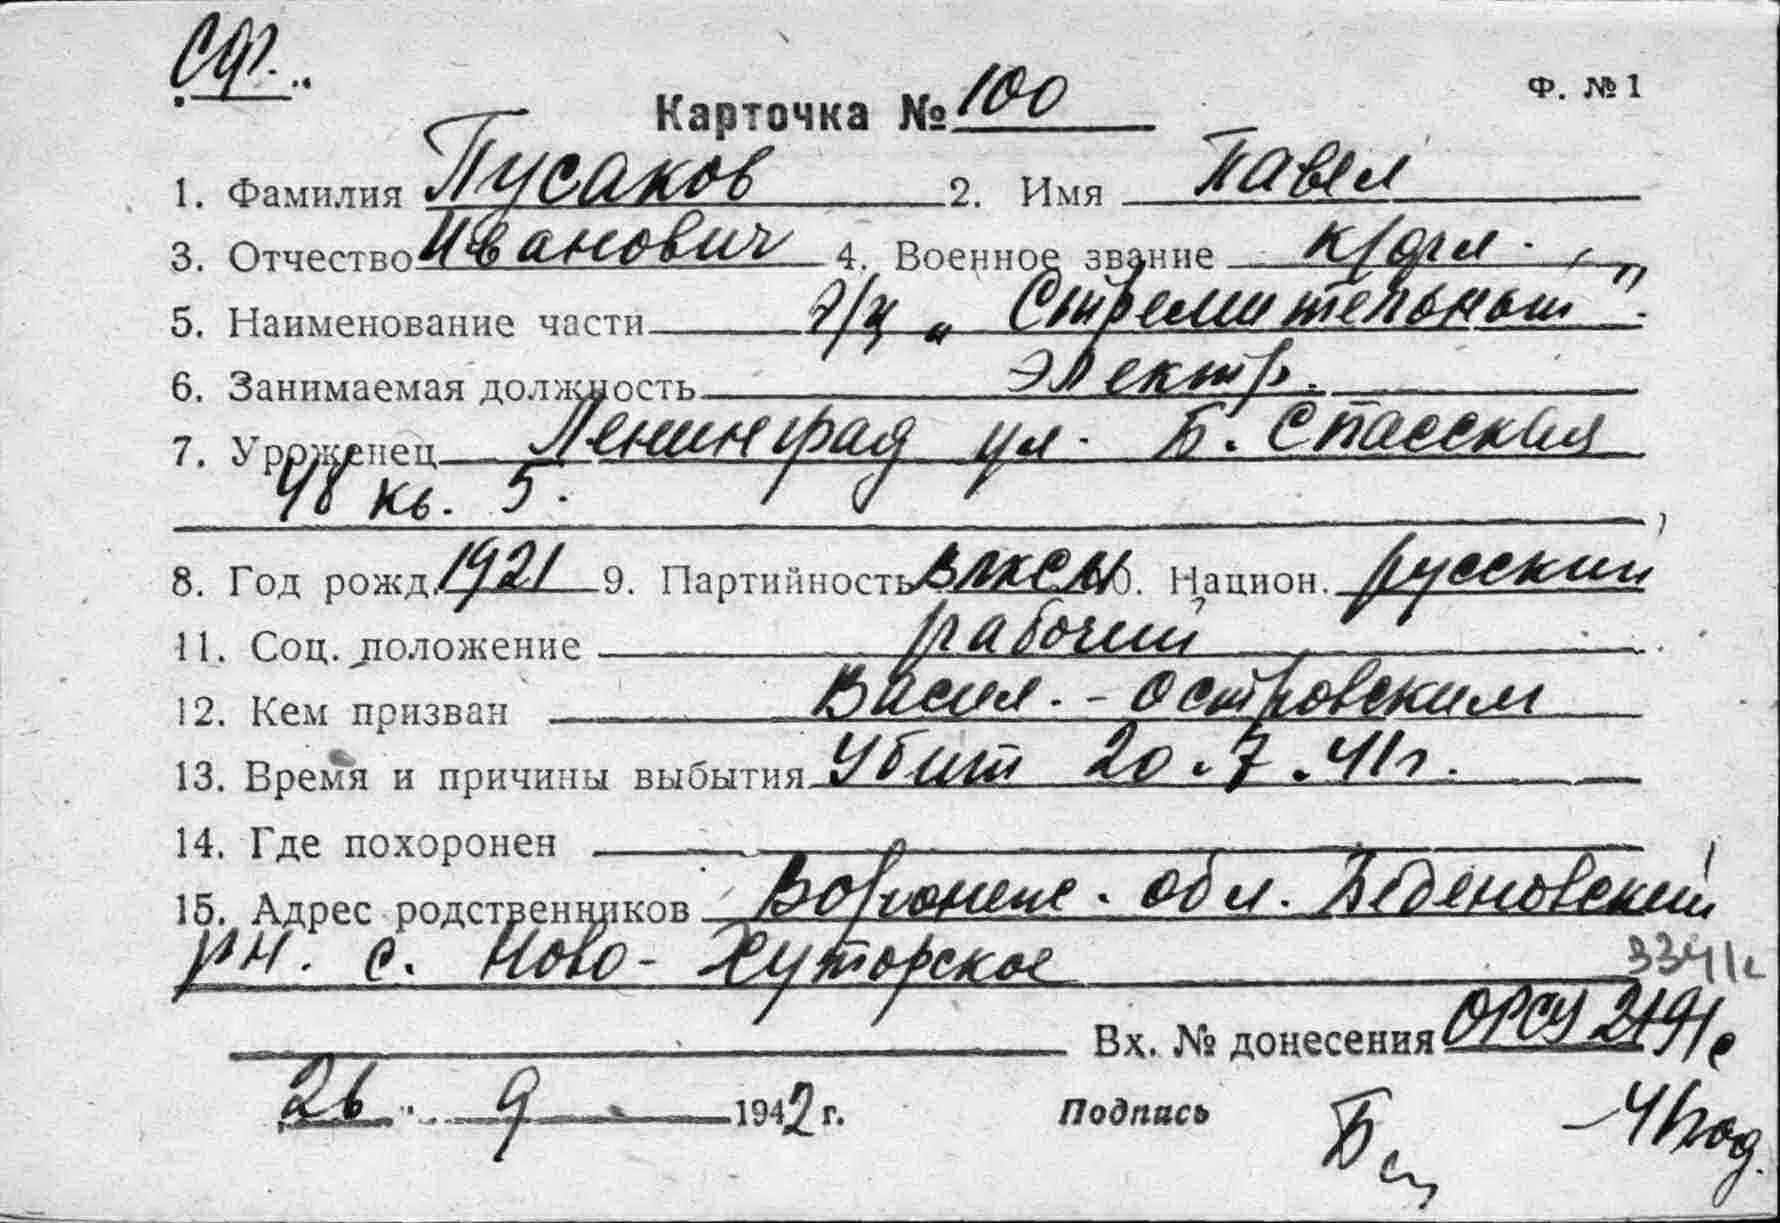 Сф.
Ф. №1
Карточка № 100
1. Фамилия Пусаков 2. Имя Павел
3. Отчество Иванович 4. Военное звание к/фл.
5. Наименование части „Стремительный".
6. Занимаемая должность электр.
7. Уроженец Ленинград ул. Б. Спасская
48 кв. 5.
8. Год рожд. 1921 9. Партийность ВЛКСМ 10. Национ. русский
11. Соц. положение рабочий
12. Кем призван Васил.-островским
13. Время и причины выбытия Убит 20.7.41г.
14. Где похоронен
15. Адрес родственников Воронеж. обл.
рн. с. Ново-Хуторское
Вх. № донесения ОРСУ
26 9 1942 г. Подпись